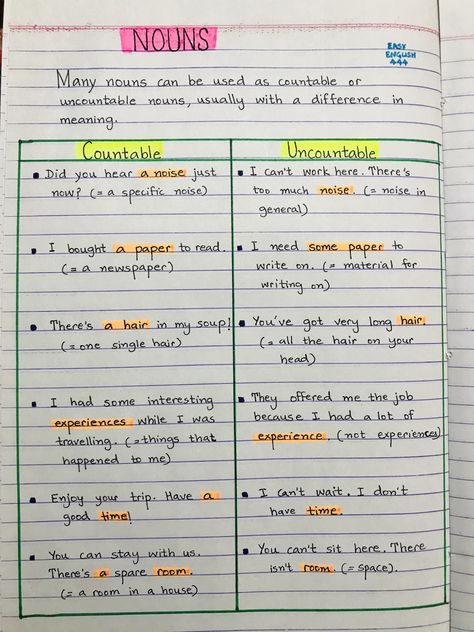 NOUNS
EASY
ENGLISH
444
Many nouns can be used as countable or
uncountable nouns, usually with a difference in
meaning.
Countable
Did you hear a noise just
now? (= a specific noise)
I bought a paper to read.
(= a newspaper)
There's a hair in my soup!
(= one single hair)
I had some interesting
experiences while I was
travelling. (= things that
happened to me)
Enjoy your trip. Have a
good time!
You can stay with us.
There's a spare room.
(= a room in a house)
Uncountable
I can't work here. There's
too much noise. (= noise in
general)
I need some paper to
write on. (= material for
writing on)
You've got very long hair.
(= all the hair on your
head)
They offered me the job
because I had a lot of
experience. (not experiences)
I can't wait. I don't
have time.
You can't sit here. There
isn't room. (= space).